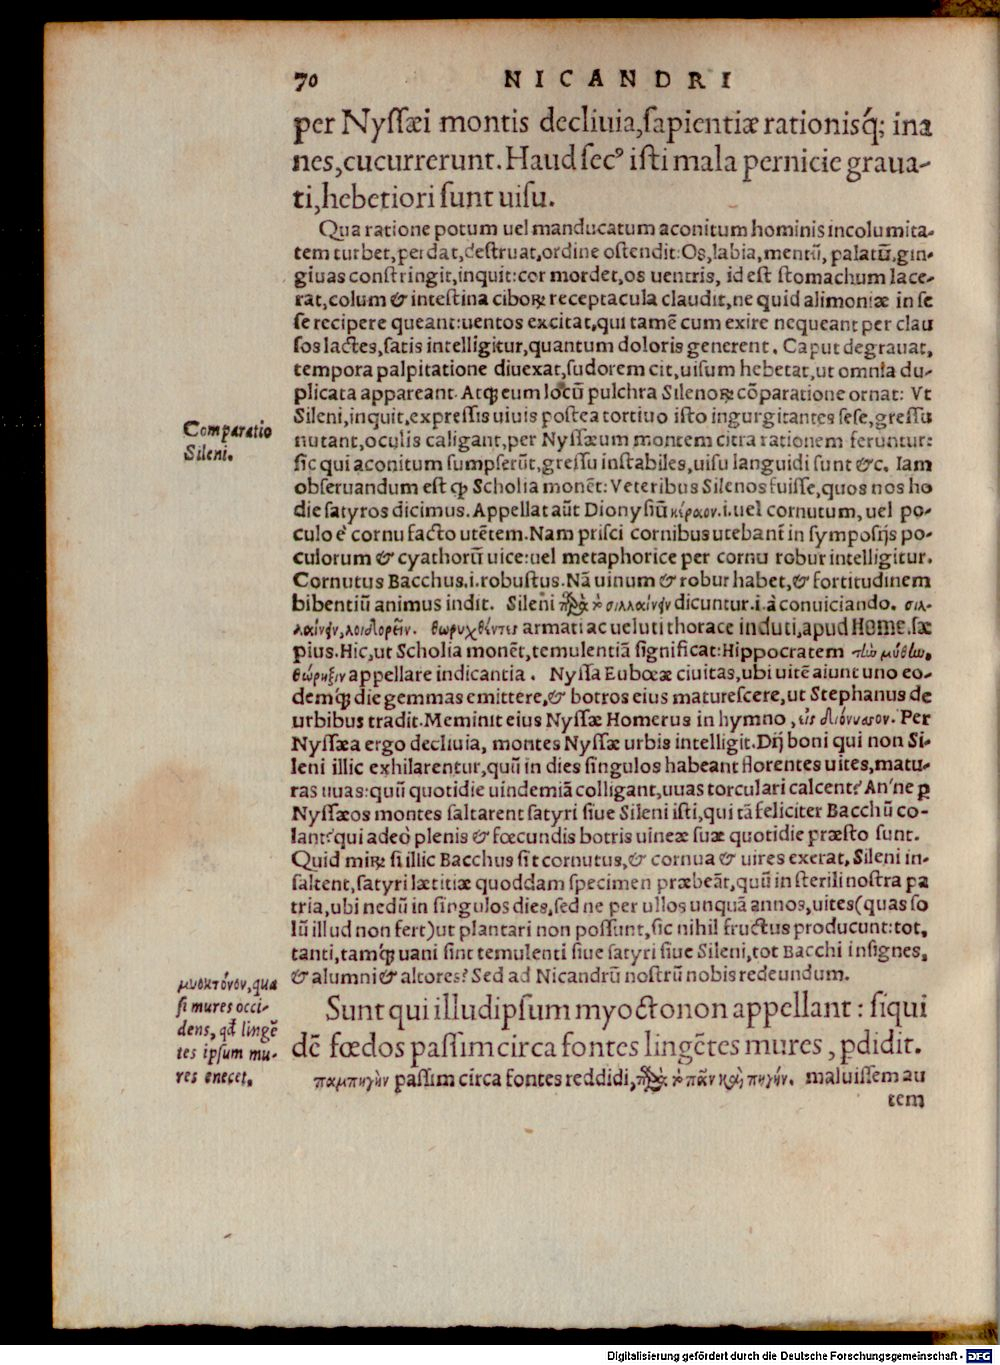 70 NICANDRI
per Nyſſæi montis decliuia,ſapientiæ rationisq́; ina
nes,cucurrerunt. Haud ſecꝰ iſti mala pernicie graua-
ti,hebetiori ſunt uiſu.
Qua ratione potum uel manducatum aconitum hominis incolumita-
tem turbet,perdat,deſtruat,ordine oſtendit:Os,labia,mentũ, palatũ,gin-
giuas conſtringit,inquit:cor mordet,os uentris, id eſt ſtomachum lace-
rat,colum & inteſtina ciboꝝ receptacula claudit,ne quid alimoniæ in ſe
ſe recipere queant:uentos excitat,qui tamẽ cum exire nequeant per clau
ſos lactes,ſatis intelligitur,quantum doloris generent. Caput degrauat,
tempora palpitatione diuexat,ſudorem cit,uiſum hebetat,ut omnia du-
plicata appareant. Atqꝫ eum locũ pulchra Silenoꝝ cõparatione ornat: Vt
Sileni,inquit,expreſſis uiuis poſtea tortiuo iſto ingurgitantes ſeſe,greſſu
nutant,oculis caligant,per Nyſſæum montem citra rationem feruntur:
ſic qui aconitum ſumpſerũt,greſſu inſtabiles,uiſu languidi ſunt &c. Iam
obſeruandum eſt ꝙ Scholia monẽt: Veteribus Silenos fuiſſe,quos nos ho
die ſatyros dicimus. Appellat aũt Dionyſiũ κέραον.i.uel cornutum, uel po-
culo è cornu facto utẽtem. Nam priſci cornibus utebant̃ in ſympoſijs po-
culorum & cyathorũ uice:uel metaphorice per cornu robur intelligitur.
Cornutus Bacchus.i.robuſtus. Nã uinum & robur habet,& fortitudinem
bibentiũ animus indit. Sileni παρὰ τὸ σιλλαίνειν dicuntur.i.à conuiciando. σιλ-
λαίνειν,λοιδορεῖν. θωρηχθέντες armati ac ueluti thorace induti,apud Home.ſæ
pius. Hic,ut Scholia monẽt,temulentiã ſignificat:Hippocratem τὴν μέθην,
θώρηξιν appellare indicantia. Nyſſa Eubœæ ciuitas,ubi uitẽ aiunt uno eo-
demq́ꝫ die gemmas emittere,& botros eius matureſcere,ut Stephanus de
urbibus tradit. Meminit eius Nyſſæ Homerus in hymno, εἰς διόνυσον. Per
Nyſſæa ergo decliuia, montes Nyſſæ urbis intelligit. Dij boni qui non Si-
leni illic exhilarentur,quũ in dies ſingulos habeant florentes uites,matu-
ras uuas:quũ quotidie uindemiã colligant,uuas torculari calcent? An'ne ꝑ
Nyſſæos montes ſaltarent ſatyri ſiue Sileni iſti,qui tã feliciter Bacchũ co-
lant?qui adeò plenis & fœcundis botris uineæ ſuæ quotidie præſto ſunt.
Quid miꝝ ſi illic Bacchus ſit cornutus,& cornua & uires exerat, Sileni in-
ſaltent,ſatyri lætitiæ quoddam ſpecimen præbeãt,quũ in ſterili noſtra pa
tria,ubi nedũ in ſingulos dies,ſed ne per ullos unquã annos,uites(quas ſo
lũ illud non fert)ut plantari non poſſunt,ſic nihil fructus producunt:tot,
tanti,tamq́ꝫ uani ſint temulenti ſiue ſatyri ſiue Sileni,tot Bacchi inſignes,
& alumni & altores? Sed ad Nicandrũ noſtrũ nobis redeundum.
Sunt qui illudipſum myoctonon appellant : ſiqui
dẽ fœdos paſſim circa fontes lingẽtes mures, ꝑdidit.
παμπηγὴν paſſim circa fontes reddidi,παρὰ τὸ πᾶν καὶ πηγήν. maluiſſem au
tem
Comparatio
Sileni.
μυοκτόνον,qua
ſi mures occi-
dens, qđ lingẽ
tes ipſum mu-
res enecet.
Digitalisierung gefördert durch die Deutsche Forschungsgemeinschaft - DFG